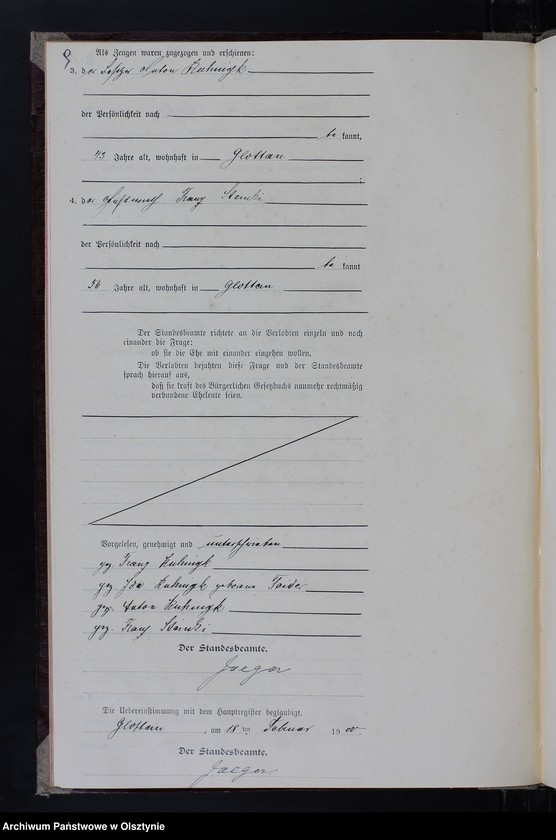 Als Zeugen waren zugezogen und erschienen:
3. der Besitzer Anton Kuhnigk
der Persönlichkeit nach
be kannt,
43 Jahre alt, wohnhaft in Glottau
;
4. der Gastwirth Franz Steinki
der Persönlichkeit nach
be kannt
56 Jahre alt, wohnhaft in Glottau
Der Standesbeamte richtete an die Verlobten einzeln und nach
einander die Frage:
ob sie die Ehe mit einander eingehen wollen.
Die Verlobten bejahten diese Frage und der Standesbeamte
sprach hierauf aus,
daß sie kraft des Bürgerlichen Gesetzbuchs nunmehr rechtmäßig
verbundene Eheleute seien.
Vorgelesen, genehmigt und unterschrieben
gez. Franz Kuhnigk
gez. Ida Kuhnigk geborene
gez. Anton Kuhnigk
gez. Franz Steinki
Der Standesbeamte.
Jaeger
Die Uebereinstimmung mit dem Hauptregister beglaubigt.
Glottau, am 18 ten Februar 1900
Der Standesbeamte.
Jaeger.
Archiwum Państwowe w Olsztynie